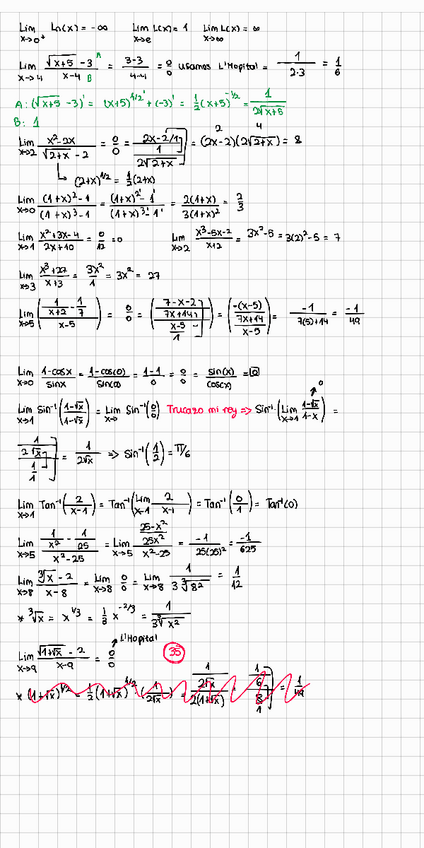 Lim x→0⁺ Ln(x) = -∞ Lim x→e L(x) = 1 Lim x→∞ L(x) = ∞
Lim x→4 (√(x+5) - 3)/(x-4) A B = (3-3)/(4-4) = 0/0 usamos L'Hopital = 1/(2·3) = 1/6
A: (√(x+5) - 3)' = (x+5)^(1/2)' + (-3)' = 1/2 (x+5)^(-1/2) = 1/(2√(x+5))
B: 1
Lim x→2 (x²-2x)/(√(2+x) - 2) = 0/0 = = (2x-2)(2√(2+x)) = 8
↳ (2+x)^(1/2) = 1/2(2+x)
Lim x→0 ((1+x)²-1)/((1+x)³-1) = ((1+x)²'-1')/((1+x)³'-1') = 2(1+x)/3(1+x)² = 2/3
Lim x→1 (x²+3x-4)/(2x+10) = 0/12 = 0 Lim x→2 (x³-5x-2)/(x+2) = 3x²-5 = 3(2)²-5 = 7
Lim x→3 (x³+27)/(x+3) = 3x²/1 = 3x² = 27
Lim x→5 ((1/(x+2) - 1/7)/(x-5)) = 0/0 = (((7-x-2)/(7x+14))/((x-5)/1)) = ((-(x-5)/(7x+14))/(x-5)) = -1/(7(5)+14) = -1/49
Lim x→0 (1-cosx)/sinx = (1-cos(0))/sin(0) = (1-1)/0 = 0/0 = sin(x)/cos(x) = 0
Lim x→1 Sin⁻¹((1-√x)/(1-x)) = Lim Sin⁻¹(0/0) Trucazo mi rey ⇒ Sin⁻¹(Lim x→1 (1-√x)/(1-x)) =
(1/(2√x))/(1/1) = 1/(2√x) ⇒ Sin⁻¹(1/2) = π/6
Lim x→1 Tan⁻¹(2/(x-1)) = Tan⁻¹(Lim x→1 2/(x-1)) = Tan⁻¹(0/1) = Tan⁻¹(0)
Lim x→5 (1/x² - 1/25)/(x²-25) = Lim x→5 ((25-x²)/(25x²))/(x²-25) = -1/(25(25)²) = -1/625
Lim x→8 (∛x - 2)/(x-8) = Lim x→8 0/0 = Lim x→8 1/(3∛8²) = 1/12
* ∛x = x^(1/3) = 1/3 x^(-2/3) = 1/(3∛x²)
L'Hopital
Lim x→9 (√(1+√x) - 2)/(x-9) = 0/0 35